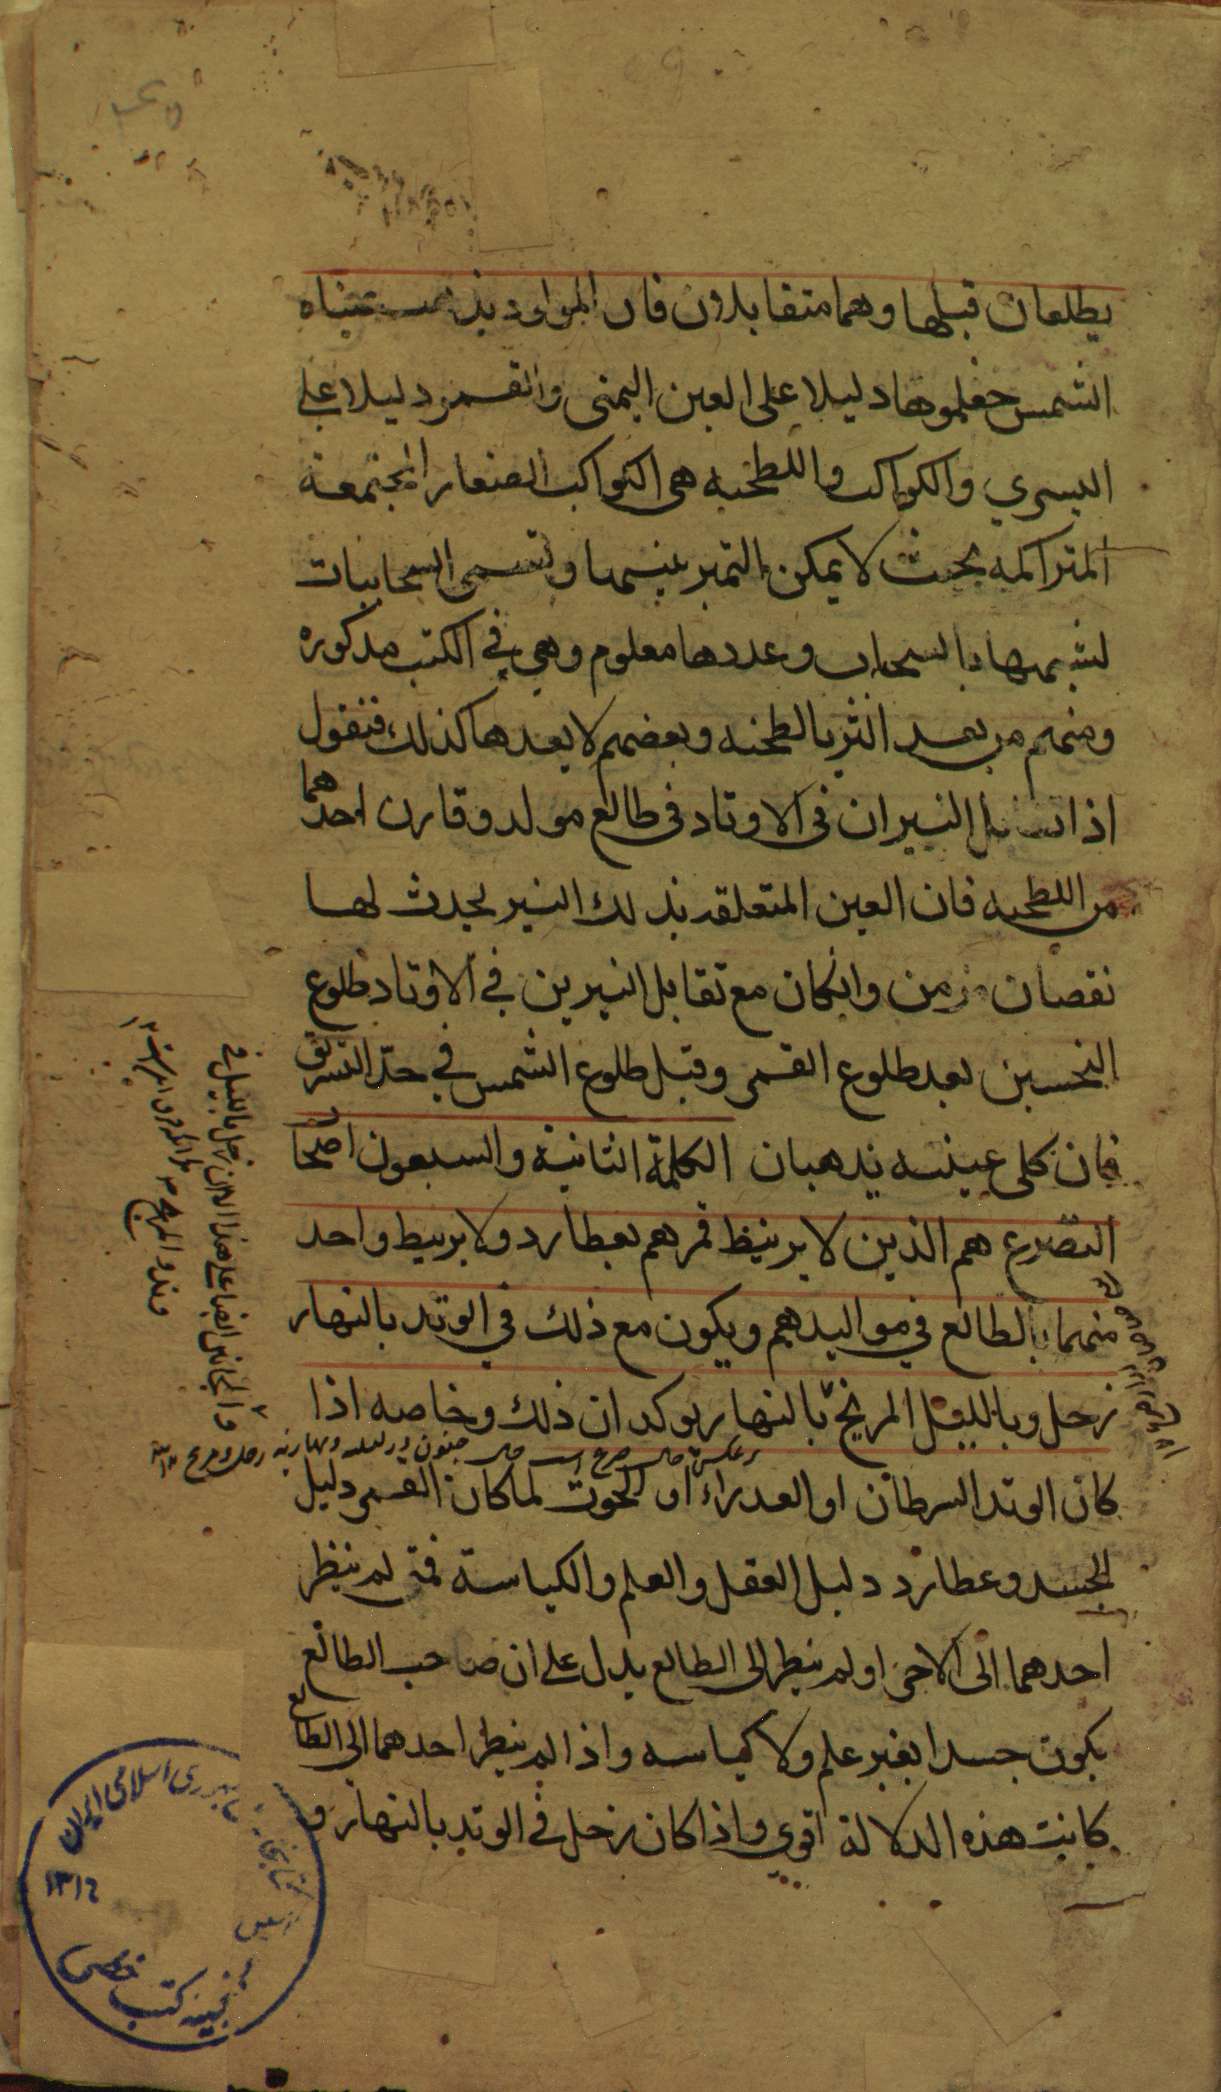 يطلعان قبلها وهما متقابلان فان المولود يذهب عيناه
الشمس جعلوها دليلا على العين اليمنى والقمر دليلا على
اليسرى والكواكب اللطخيه هى الكواكب الصغار المجتمعة
المتراكمه بحيث لا يمكن التميز بينهما وتسمى السحابيات
لشبهها بالسحاب وعددها معلوم وهى في الكتب مذكوره
ومنهم من يعد الثريا لطخيه وبعضهم لا يعدها كذلك فنقول
اذا تقابل النيران فى الاوتاد فى طالع مولد وقارن احدهما
من اللطخيه فان العين المتعلقه بذلك النير يحدث لها
نقصان مزمن وان كان مع تقابل النيرين في الاوتاد طلوع
النحسين بعد طلوع القمر وقبل طلوع الشمس في حد التشريق
فان كلى عينيه يذهبان الكلمة الثانية والسبعون اصحاب
التصرع هم الذين لا يرتبط قمرهم بعطارد ولا يرتبط واحد
منهما بالطالع في مواليدهم ويكون مع ذلك في الوتد بالنهار
زحل وبالليل المريخ بالنهار يوكدان ذلك وخاصه اذا
كان الوتد السرطان او العذراء او الحوت لما كان القمر دليل
الجسد وعطارد دليل العقل والعلم والكياسة فمتى لم ينظر
احدهما الى الاخر او لم ينظر الى الطالع يدل على ان صاحب الطالع
يكون جسدا بغير علم ولا كياسه واذا لم ينظر احدهما الى الطالع
كانت هذه الدلالة اقوى واذا كان زحل في الوتد بالنهار و
اسلامى ايران
۱۳۱۲
گنجينه كتب خطى